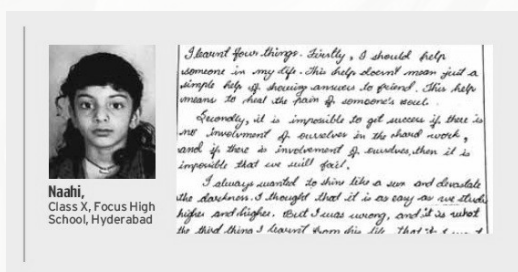 I learnt four things. Firstly, I should help
someone in my life. This help doesn't mean just a
simple help of showing answers to friend. This help
means to heal the pain of someone's soul.
Secondly, it is impossible to get success if there is
no involvment of ourselves in the hard work,
and if there is involvement of ourselves, then it is
impossible that we will fail.
I always wanted to shine like a sun and devastate
the darkness. I thought that it is as easy as we study
higher and higher. But I was wrong, and it is what
the third thing I learnt from this life that
Naahi,
Class X, Focus High
School, Hyderabad